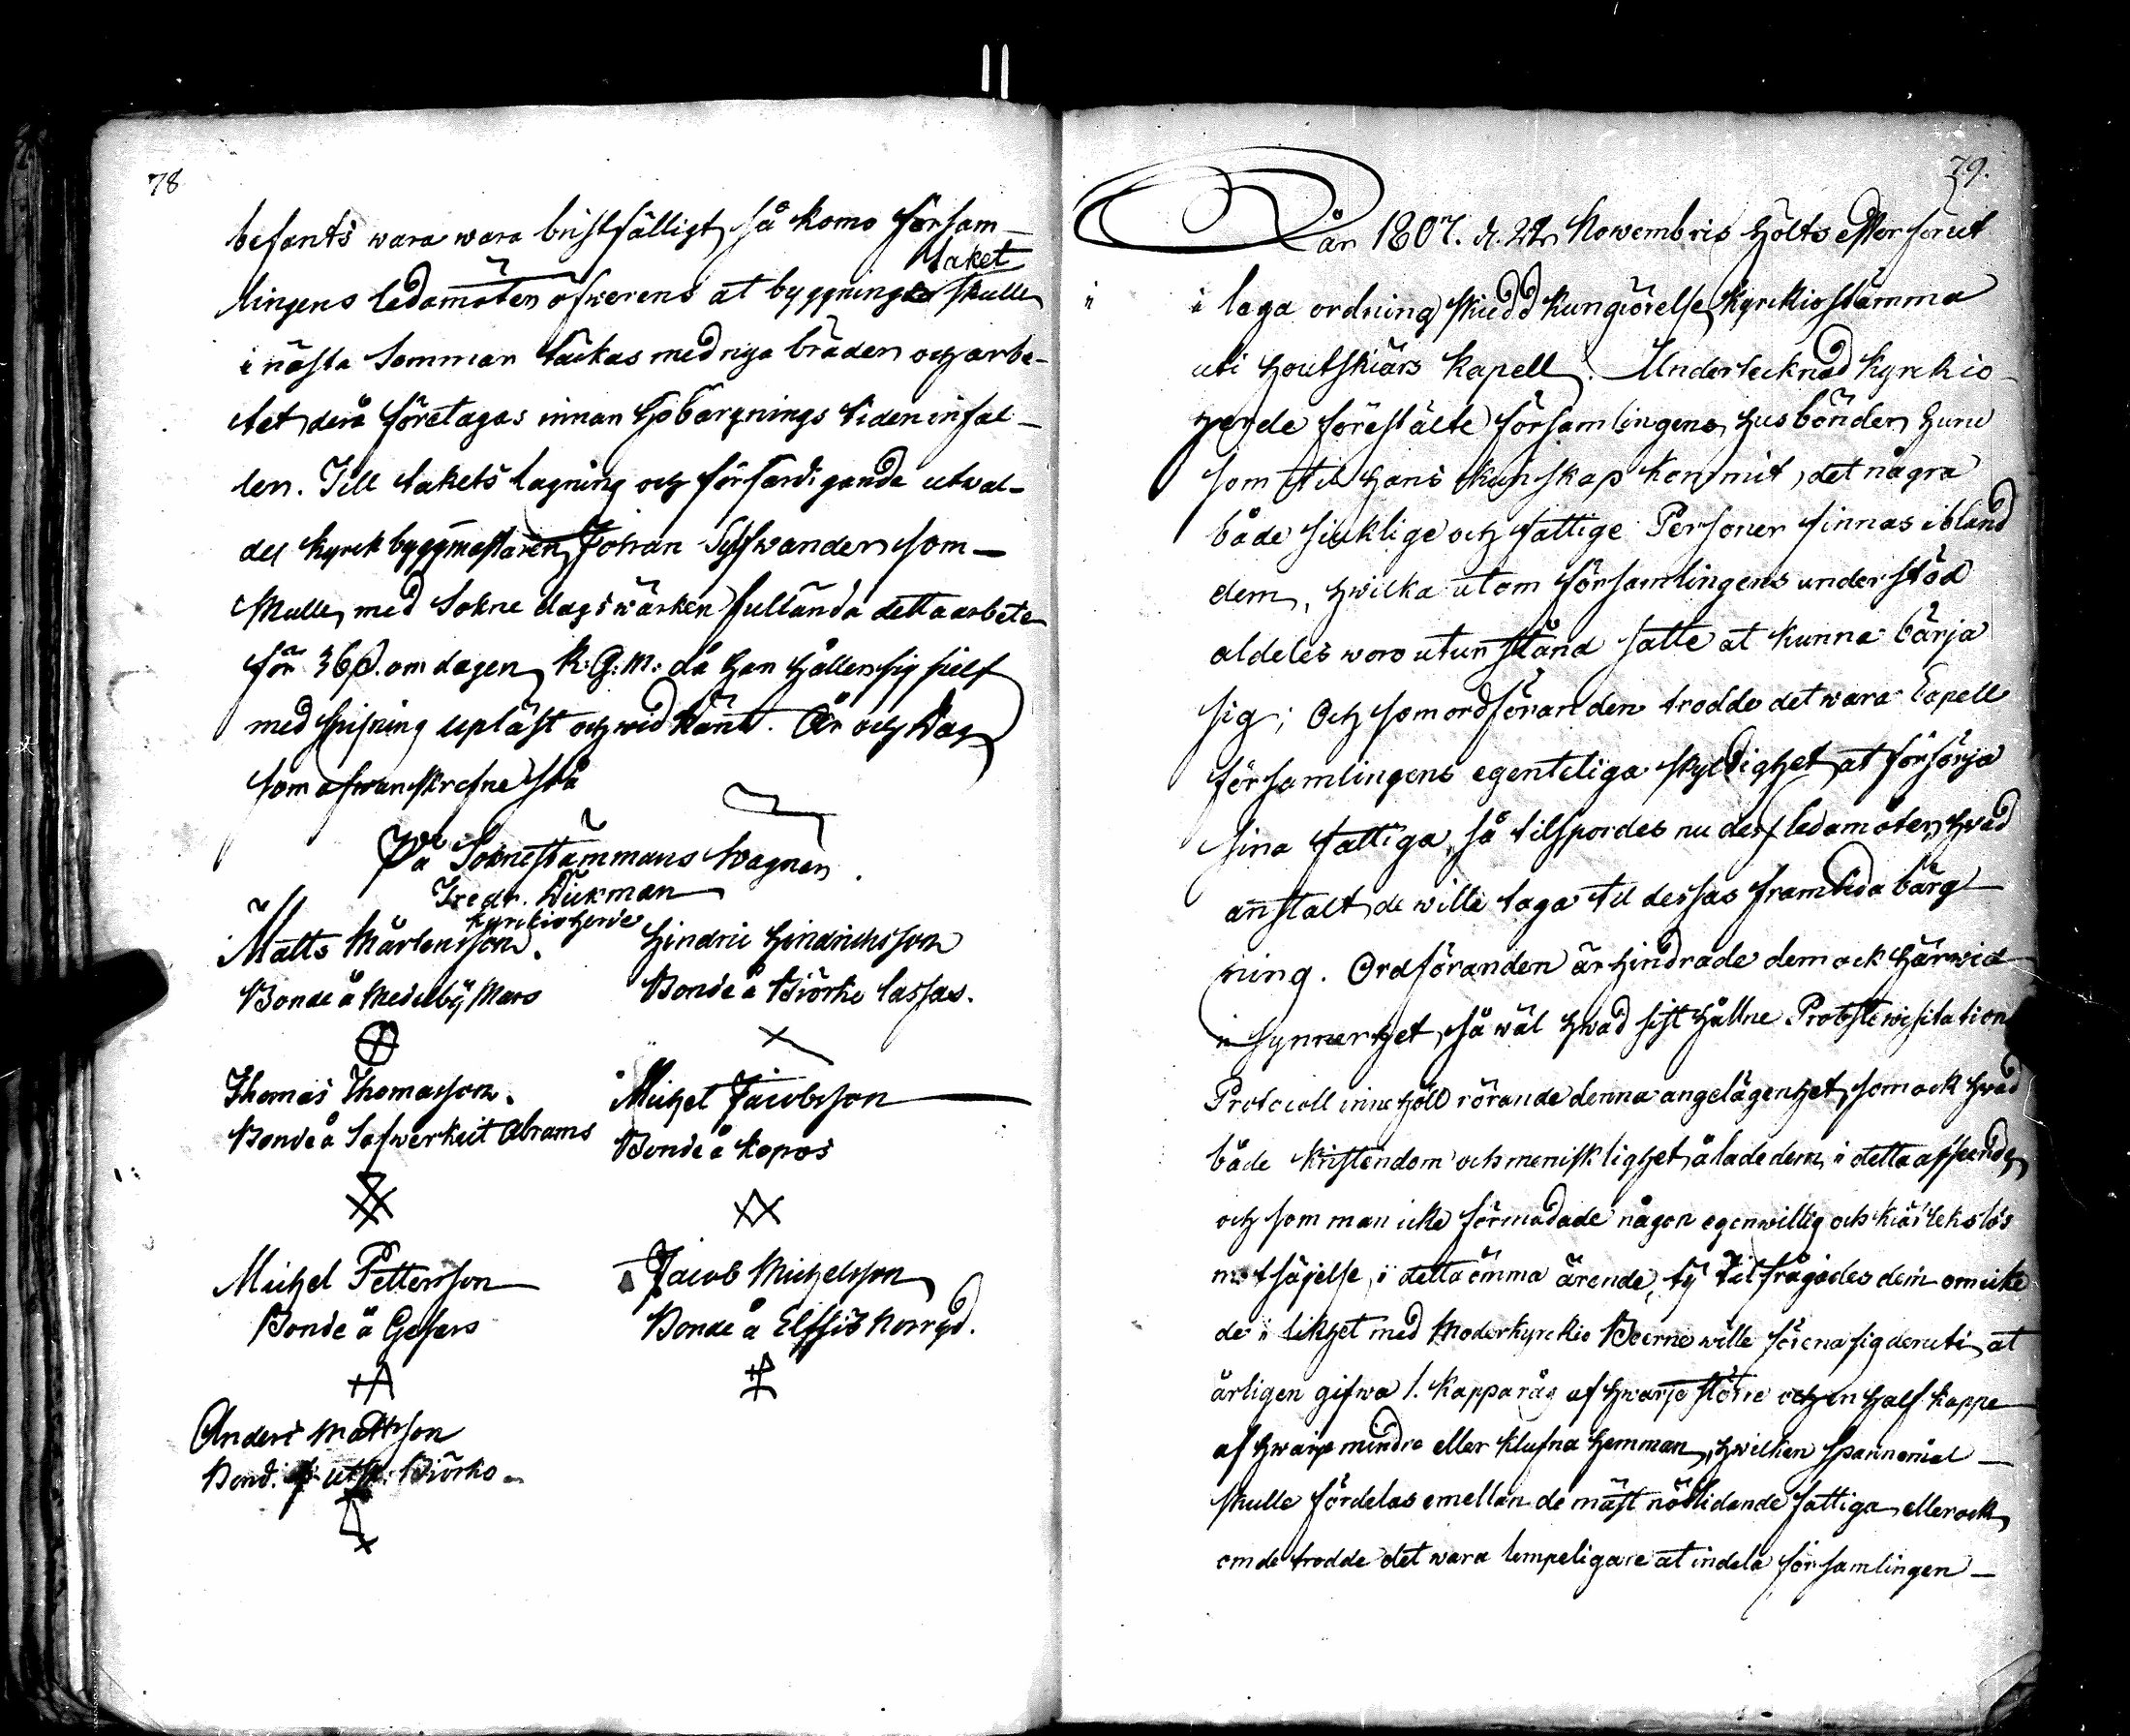 78
befants wara wara bristfälligt, så komo försam-
lingens ledamöter öfwerens at byggnings taket skulle
i nästa Sommar täckas med nya bräder och arbe-
tet derå företagas innan Höbärgnings tiden infal-
ler. Till takets lagning och förfärdigande utwal-
des Kyrckbyggmästaren Johan Sylfwander som
skulle med Sokne dagswärken fullända detta arbete
för 36 ß. om dagen R:G:M: då han håller sig sielf
med spisning upläst och widkänt. År och Dag
som ofwanskrefne stå
På Sokne stämmans wägnar
Fredr. Dickman
Kyrckioherde
Matts Mårtensson.
Bonde å Medelby Mars
Hindric Hindrichsson
Bonde å Biörke lassas.
Thomas Thomasson.
Bonde å Safwerkeit Abrams
Michel Jacobsson
Bonde å Kopos
Michel Pettersson
Bonde å Gesers
Jacob Michelsson
Bonde å Elfsiö Norrgd.
Anders Mattsson
Bond. Biörko
79.
År 1807. d. 22 Novembris hölts efter förut
i laga ordning skiedd kungiörelse Kyrckiostämma
uti Houtskiärs Kapell. Undertecknad Kyrckio-
herde förestälte församlingens husbönder huru
som til hans kunskap kommit, det några
både siuklige och fattige Personer finnas ibland
dem, hwilka utom församlingens understöd
aldeles woro utur stånd satte at kunna bärja
sig; Och som ordföranden trodde det wara Capell
församlingens egenteliga skyldighet at försörja
sina fattiga, så tilspordes nu dess ledamöter, hwad
anstalt de wille taga til dessas framtida bärg-
ning. Ordföranden ärhindrade dem ock härwid
i synnerhet, så wäl hwad sist hållne Probstewisitations
Protocoll innehöll rörande denna angelägenhet, som ock hwad
både kristendom och menisklighet ålade dem i detta afseende,
och som man icke förmodade någon egenwillig och kiärlekslös
motsäjelse i detta ömma ärende, ty tilfrågades dem om icke
de i likhet med Moderkyrckio Boerne wille förena sig deruti, at
årligen gifwa 1. Kappa råg af hwarje större och en half kappe
af hwarje mindre eller klufna hemman, hwilken Spannemål
skulle fördelas emellan de mäst nödlidande fattiga, eller ock,
om de trodde det wara lempeligare at indela församlingen